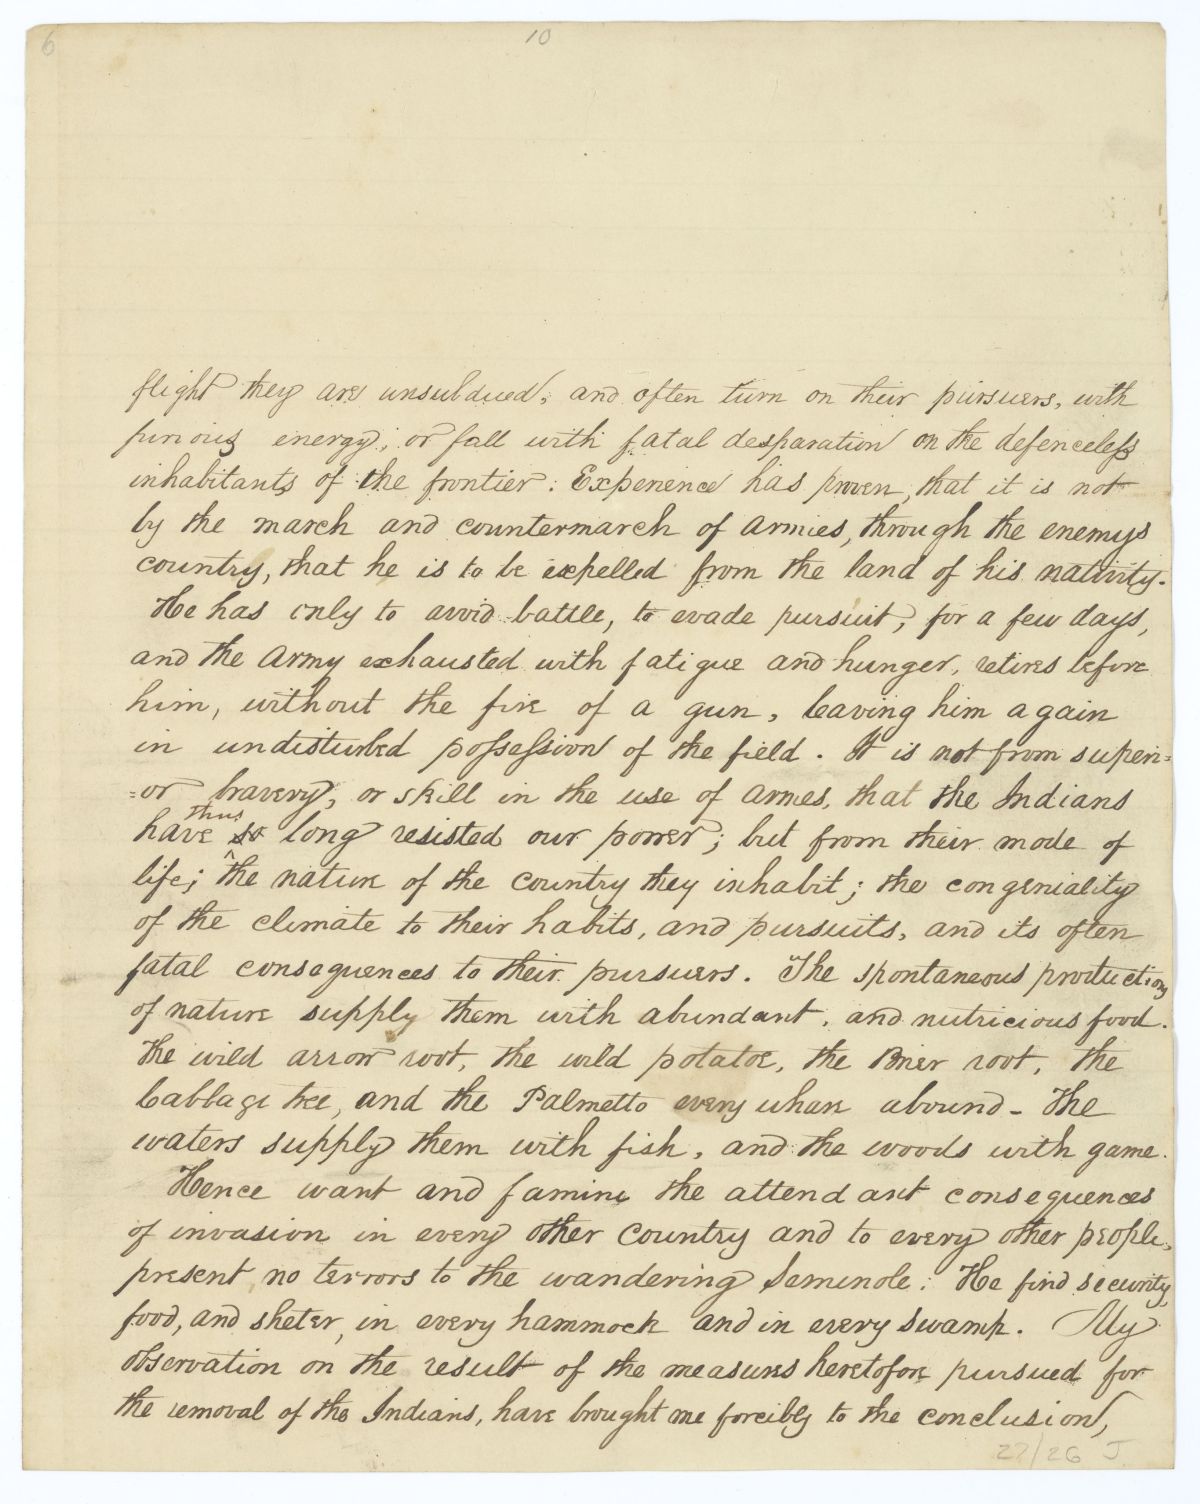 6
10
flight they are unsubdued, and often turn on their pursuers, with
furious energy; or fall with fatal desparation on the defenceless
inhabitants of the frontier. Experience has proven, that it is not
by the march and countermarch of Armies, through the enemys
country, that he is to be expelled from the land of his nativity.
He has only to avoid battle, to evade pursuit, for a few days,
and the Army exhausted with fatigue and hunger, retires before
him, without the fire of a gun, leaving him again
in undisturbed possession of the field. It is not from superi=
=or bravery, or skill in the use of armes, that the Indians
thus
have so long resisted our power; but from their mode of
life; the nature of the country they inhabit; the congeniality
of the climate to their habits, and pursuits, and its often
fatal consequences to their pursuers. The spontaneous productions
of nature supply them with abundant, and nutricious food.
The wild arrow root, the wild potatoe, the Brier root, the
Cabbage tree, and the Palmetto every whare abound - The
waters supply them with fish, and the woods with game.
Hence want and famine the attendant consequences
of invasion in every other country and to every other people,
present no terrors to the wandering Seminole. He find security,
food, and sheter, in every hammock and in every swamp. My
observation on the result of the measures heretofore pursued for
the removal of the Indians, have brought me forcibly to the conclusion,
27/26 J